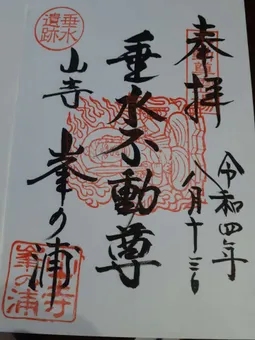 奉拝
令和四年
八月十三日
垂水不動尊
垂水
遺跡
山寺 峯の浦
山寺
峯の浦